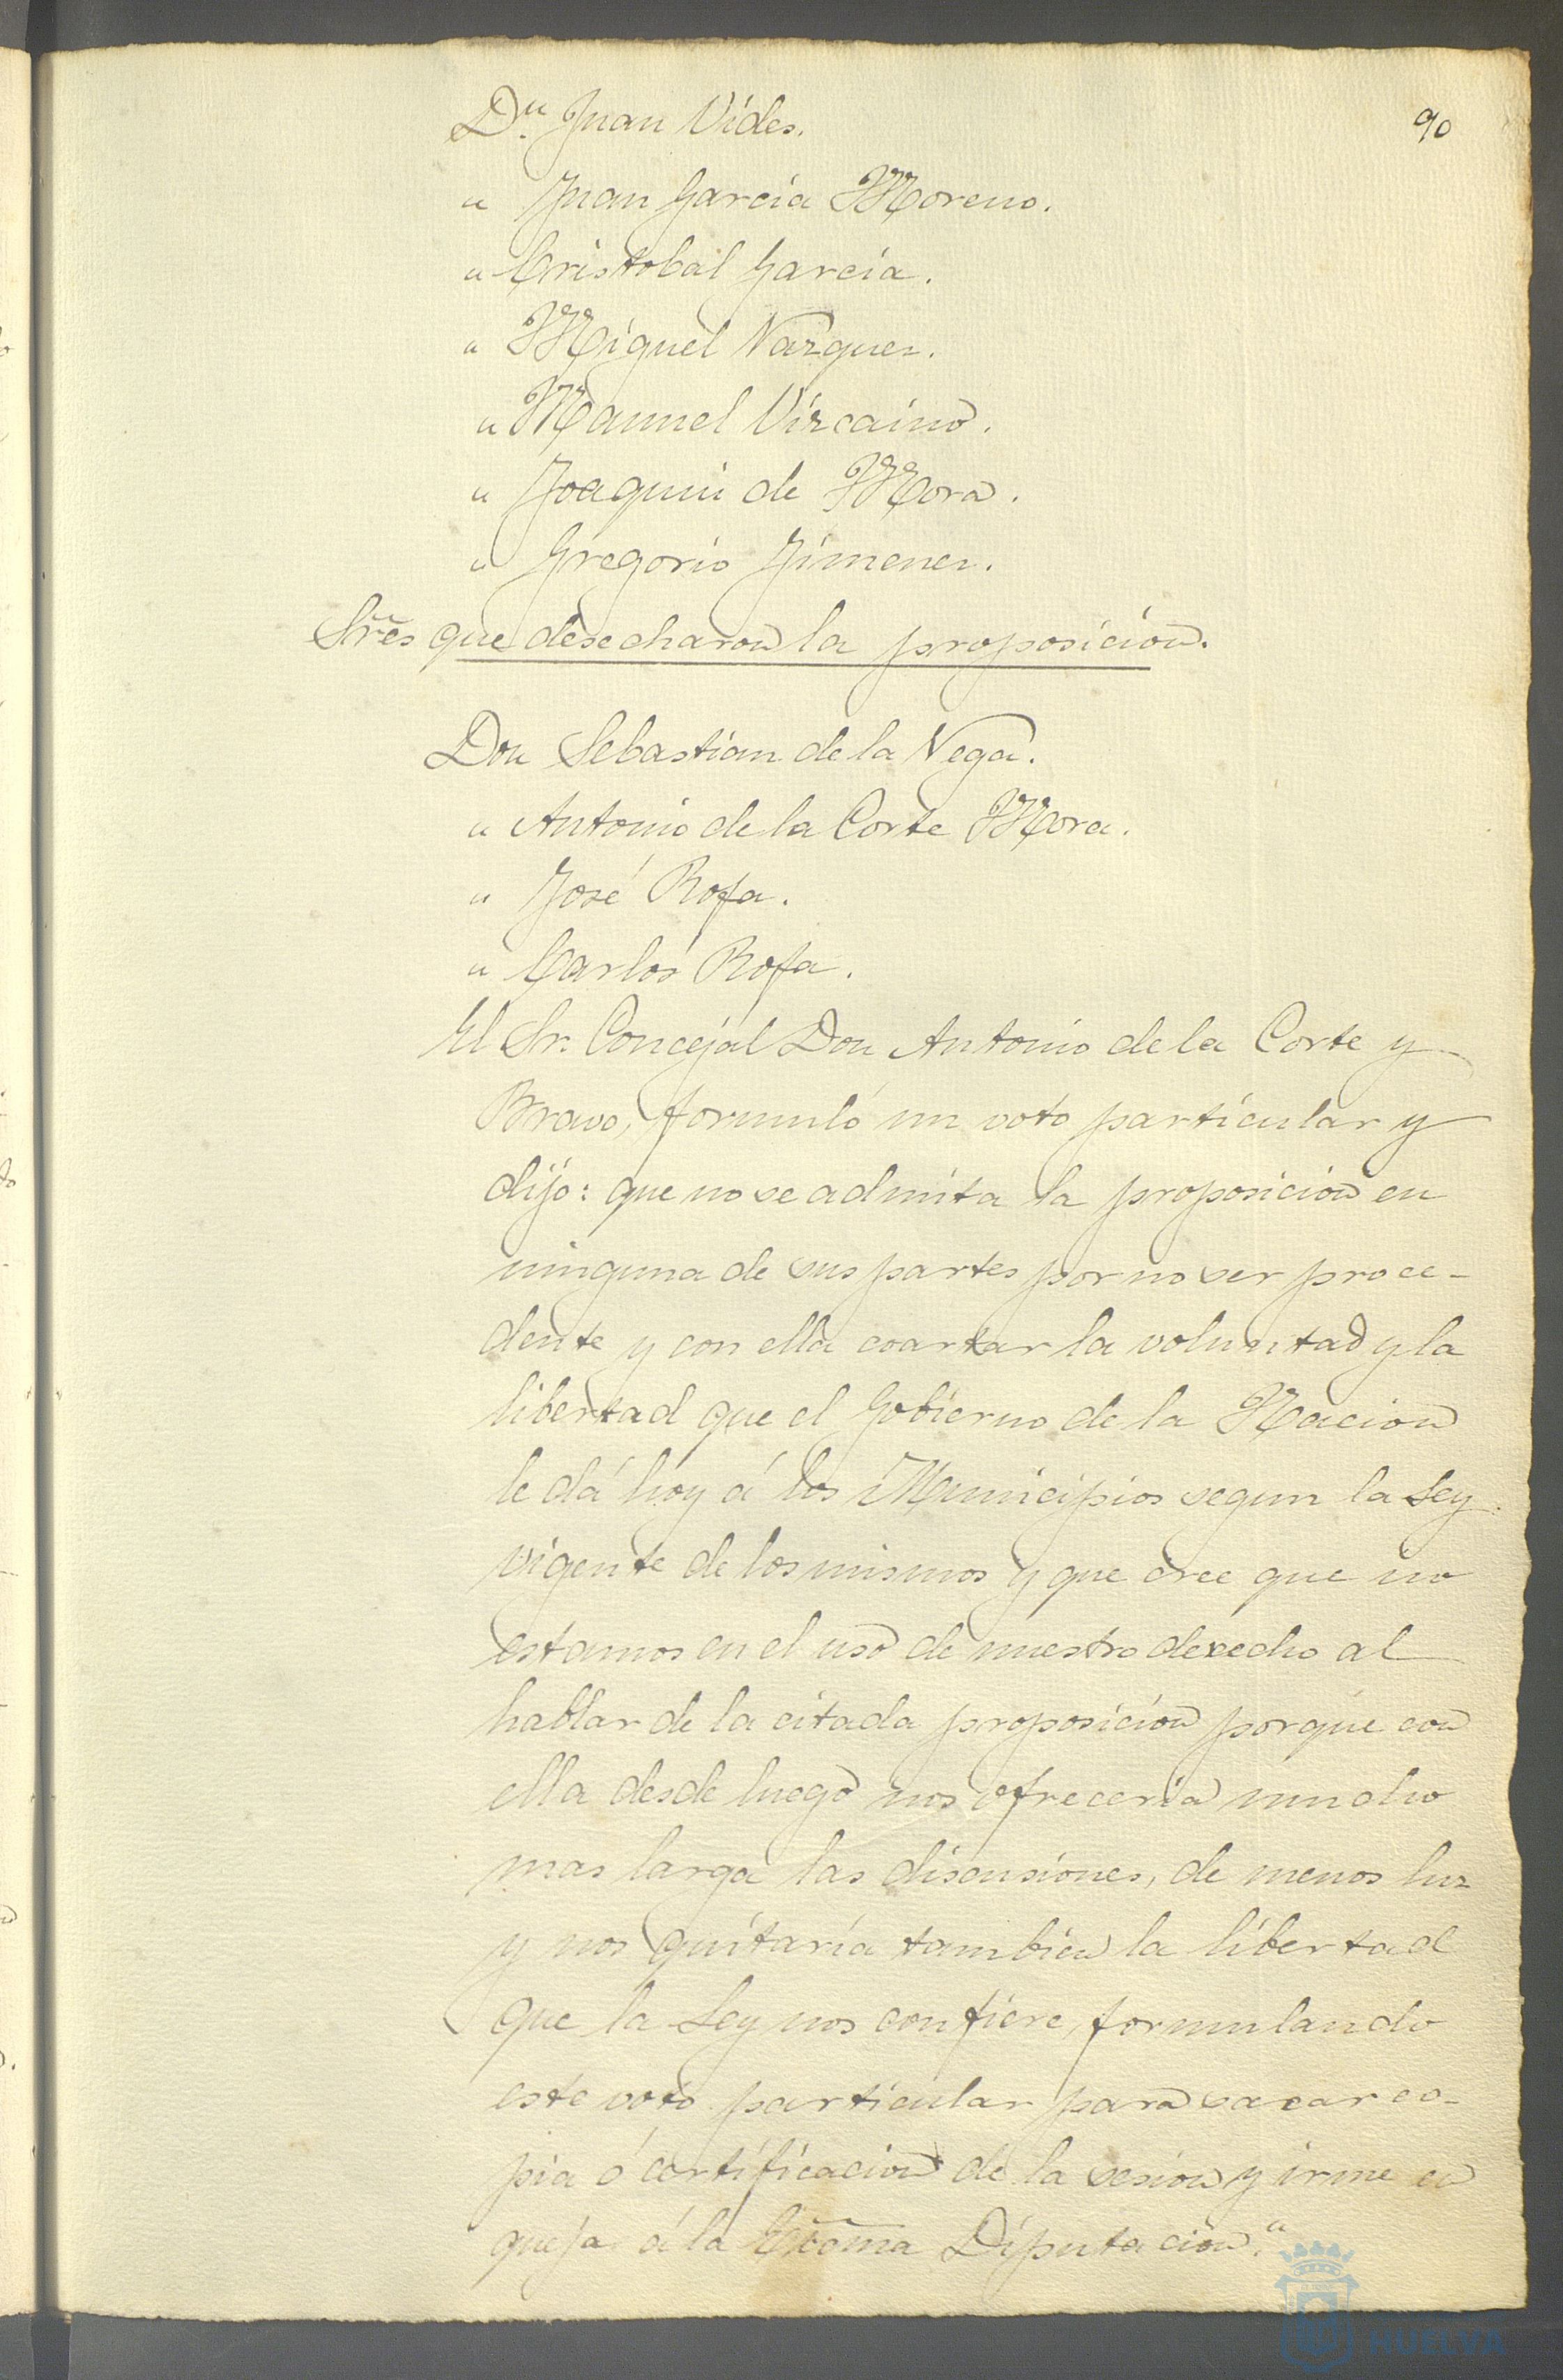 90
Dn. Juan Vides.
" Juan Garcia Moreno.
" Cristobal Garcia.
" Miguel Vazquez.
" Manuel Vizcaino.
" Joaquin de Mora.
" Gregorio Jimenez.
Sres que desecharon la proposicion.
Don Sebastian de la Vega.
" Antonio de la Corte Mora.
" José Rofa.
" Carlos Rofa.
El Sr. Concejal Don Antonio de la Corte y
Bravo, formuló un voto particular y
dijo: que no se admita la proposicion en
ninguna de sus partes por no ser proce-
dente y con ella coartar la voluntad y la
libertad que el Gobierno de la Nacion
le dá hoy á los Municipios segun la Ley
vigente de los mismos y que cree que no
estamos en el uso de nuestro derecho al
hablar de la citada proposicion porque con
ella desde luego nos ofreceria mucho
mas larga las discusiones, de menos luz
y nos quitaria tambien la libertad
que la Ley nos confiere, formulando
este voto particular para sacar co-
pia ó certificacion de la sesion y irme en
queja á la Excma Diputacion."
HUELVA